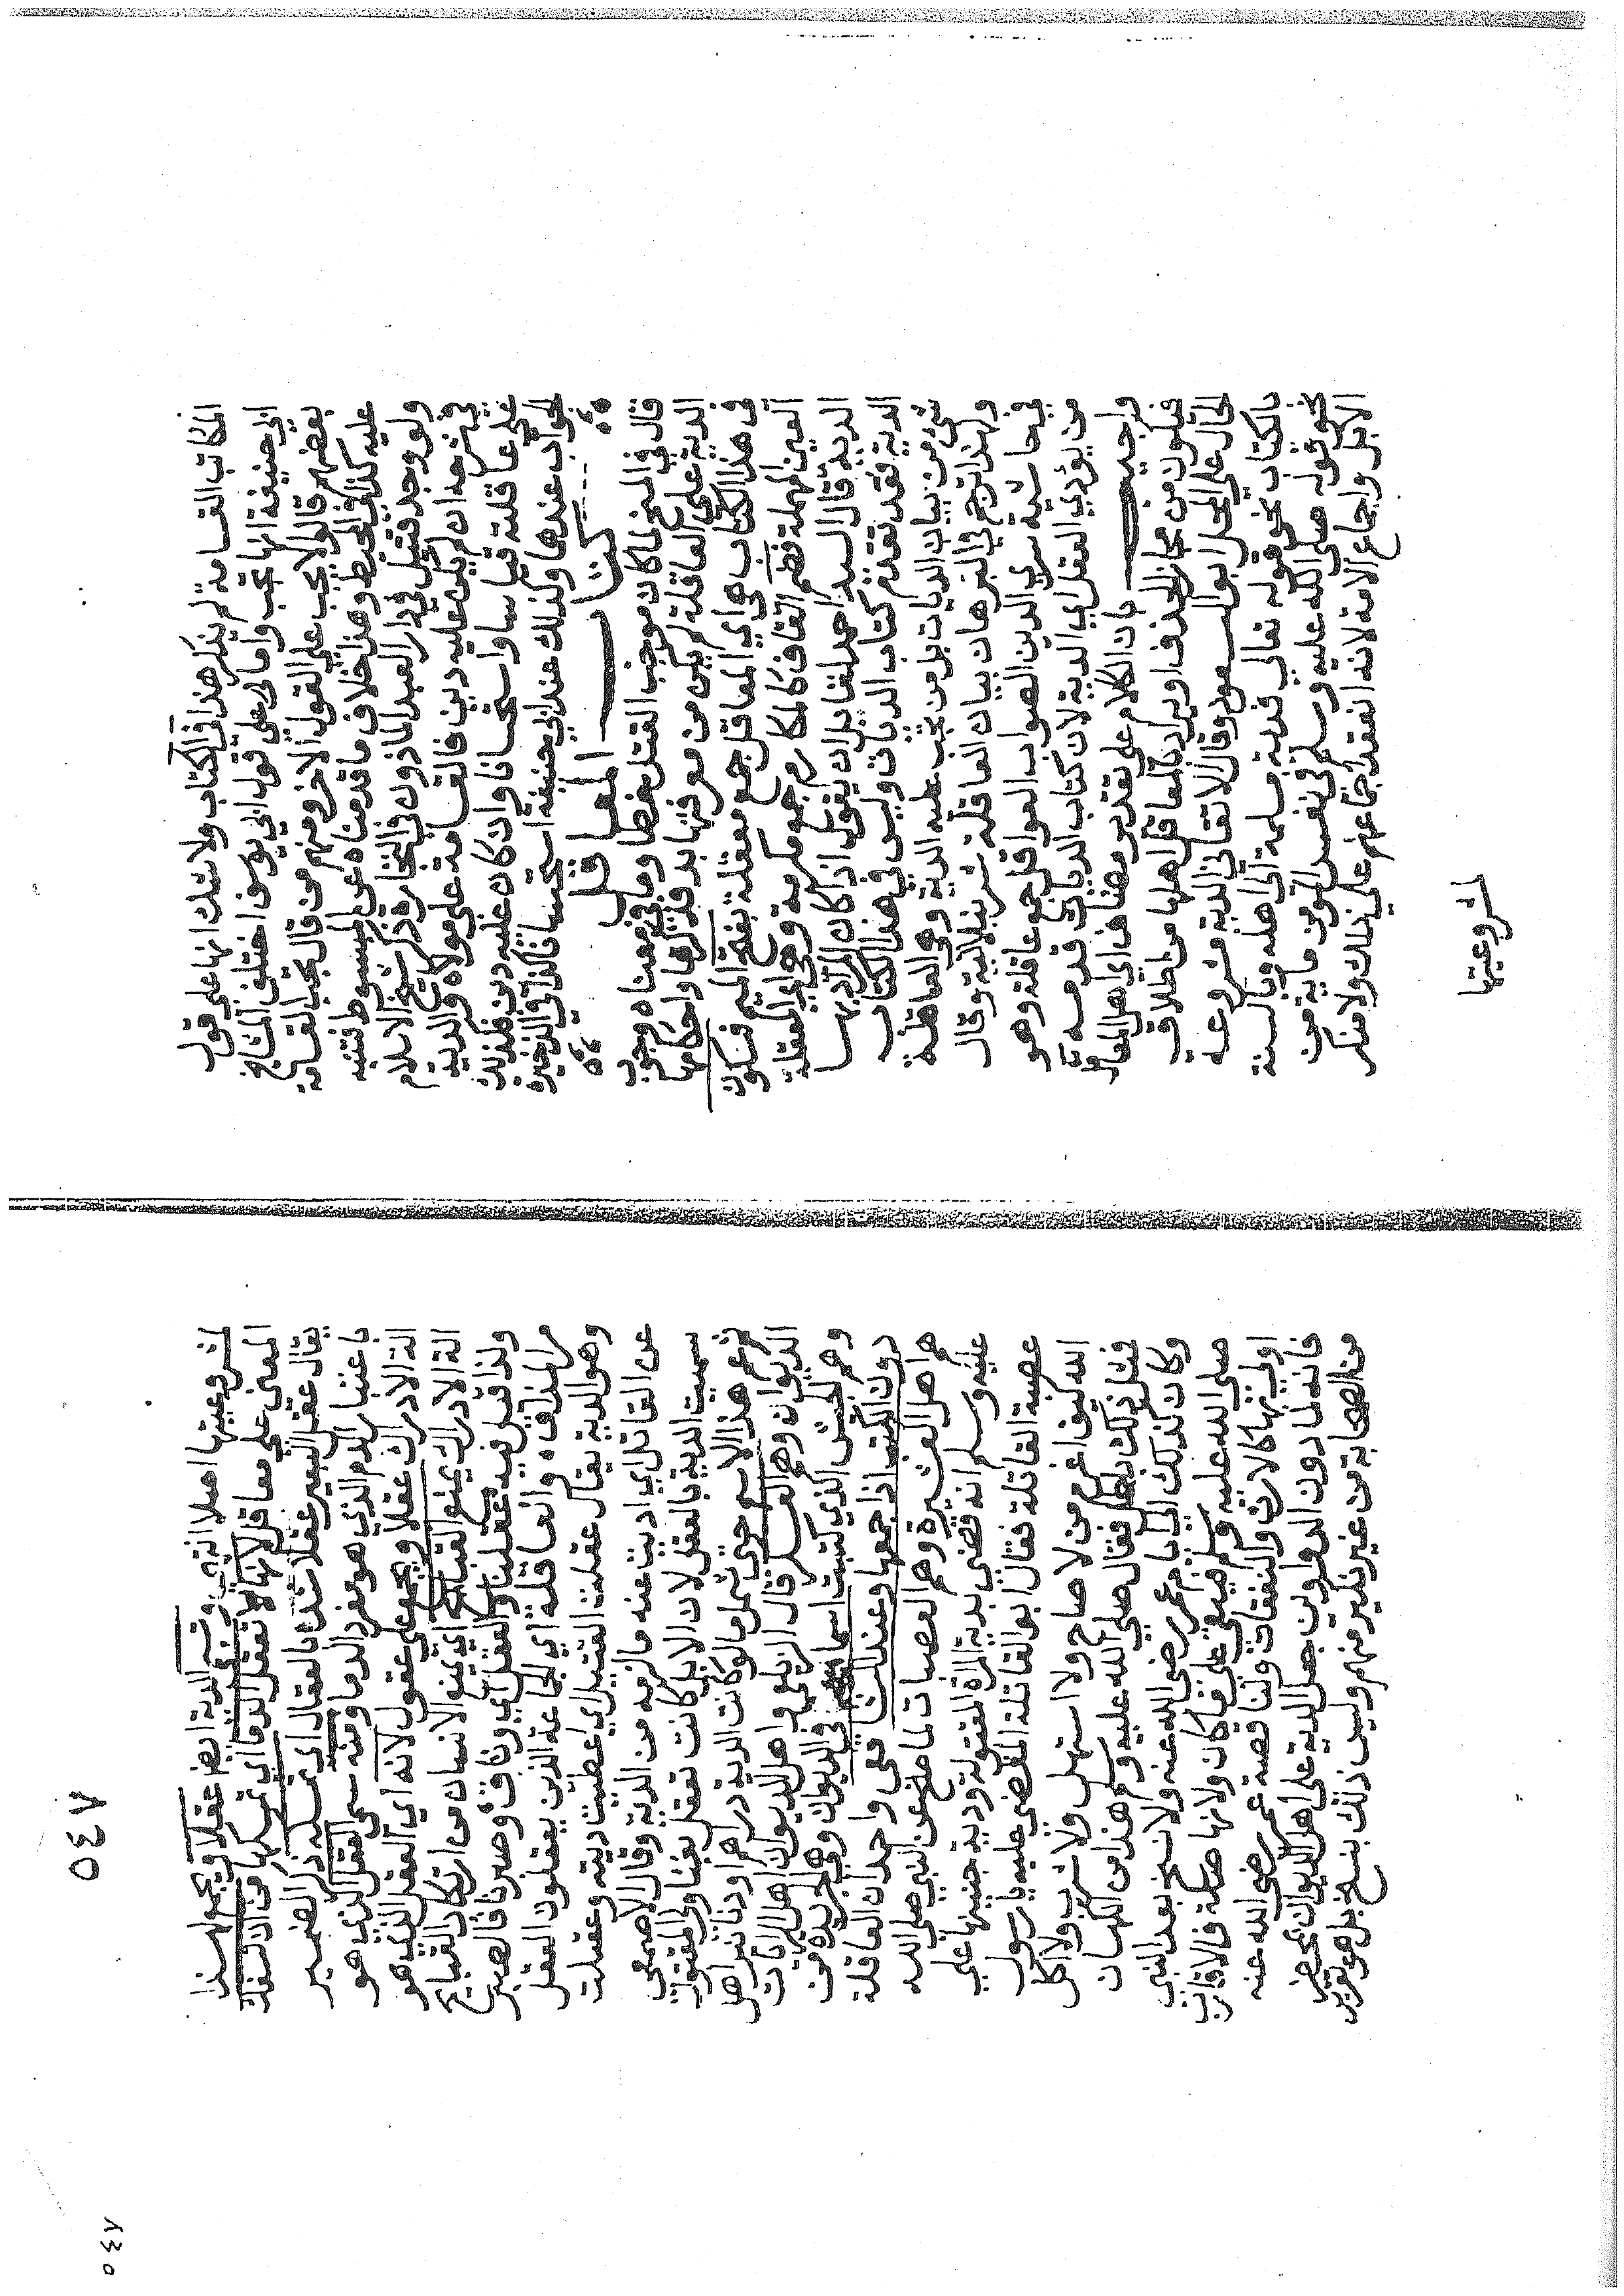 المكاتب القسامة لم يذكر هذا في الكتاب ولا شك انها على قول
ابي حنيفة انها تجب واما على قول ابي يوسف اختلف المشايخ
بعضهم قالوا لا يجب على القول الاخر ومنهم من قال تجب القسامة
عليه كذا في المحيط وهذا خلاف ما قدمناه عن المبسوط فتنبه
ولو وجد قتيل في دار العبد الماذون في التجارة ذكر شيخ الاسلام
في شرحه ان لم يكن عليه دين فالقسامة على مولاه والدية
على عاقلته قياسا واستحسانا وان كان عليه دين فكذلك
الجواب عندهما وكذلك عند ابي حنيفة استحسانا كذا في الذخيرة
كتاب المعاقل
قال في المنح لما كان موجب القتل خطا وما في معناه وجوب
الدية على العاقلة لم يكن من معرفتها بد فذكرها واحكامها
في هذا الكتاب هي اي المعاقل جمع معقلة بفتح الميم فسكون
العين المهملة فضم القاف كالمكارم جمع مكرمة وهي اي المعقلة
الدية قال السيد احمد لقائل ان يقول اذا كان المراد بها
الدية فقد تقدم كتاب الديات وليس في هذا الكتاب
شيء من بيان الديات بل من تجب عليه الدية وهي العاقلة
ولهذا ترجم في البرهان بيان العاقلة شرنبلالية وقال
في حاشية سري الدين الصواب العواقل جمع عاقلة وهو
من يؤدي العقل اي الدية لان كتاب الديات قد مر اه
واجيب بان الكلام على تقدير مضاف اي اهل المعاقل
فيكون من مجاز الحذف او يراد بالمعاقل اهلها من اطلاق
الحال على المحل ابو السعود وقال الاتقاني الدية مشروعة
بالكتاب نحو قوله تعالى فدية مسلمة الى اهله وبالسنة
نحو قوله صلى الله عليه وسلم في نفس المؤمن ماية من
الابل واجماع الامة لانه انعقد اجماعهم على ذلك ولا منكر
لشروعيتها
٥٤٧
لشروعيتها اصلا انتهى وتسمى الدية ايضا عقلا وتجمع لهذا
المعنى على معاقل لانها تعقل الدما اي تمسكها من ان تسفك
يقال عقل البعير عقلا شده بالعقال اي تمسكه ذكر الضمير
باعتبار الدم الذي هو مفرد الدما ومنه سمي العقل الذي هو
الة الادراك عقلا ويجمع على عقول لانه اي العقل الذي هو
الة الادراك يمنع القبائح اي يمنع الانسان من ارتكاب القبايح
ولذا قيل فيه عقلنا والعقل اي وثاق وصبرنا فالصبر
مر المذاق ه والعاقلة اي الجماعة الذين يعقلون العقل
وهو الدية يقال عقلت القتيل اي اعطيت ديته وعقلت
عن القاتل اي اديت عنه ما لزمه من الدية وقال الاصمعي
سميت الدية بالعقل لان الابل كانت تعقل بفنا ولي المقتول
ثم عم هذا الاسم حتى شمل ما لو كانت الدية دراهم او دنانير اهل
الديوان وهم العسكر قال الزيلعي واهل الديوان اهل الرايات
وهم الجيش الذي كتبت اسماؤهم في الديوان وهي الجريدة من
دون الكتب اذا جمعها وعند الشافعي واحد ان العاقلة
هم اهل العشيرة وهم العصبات لما صح عن النبي صلى الله
عليه وسلم انه قضى بدية المراة المقتولة ودية جنينها على
عصبة القاتلة فقال ابو القاتلة المقضي عليه يا رسول
الله كيف اغرم من لا صاح ولا استهل ولا شرب ولا اكل
فمثل ذلك بطل فقال صلى الله عليه وسلم هذا من الكهان
وكان كذلك الى ايام عمر رضي الله عنه ولا نسخ بعد النبي
صلى الله عليه وسلم فيبقى على ما كان ولانها صلة فالاقارب
اولى بها كالارث والنفقات ولنا قصة عمر رضي الله عنه
فانه لما دون الدواوين جعل الدية على اهل الديوان بمحضر
من الصحابة من غير نكير منهم وليس ذلك بنسخ بل هو تقرير
٥٤٧